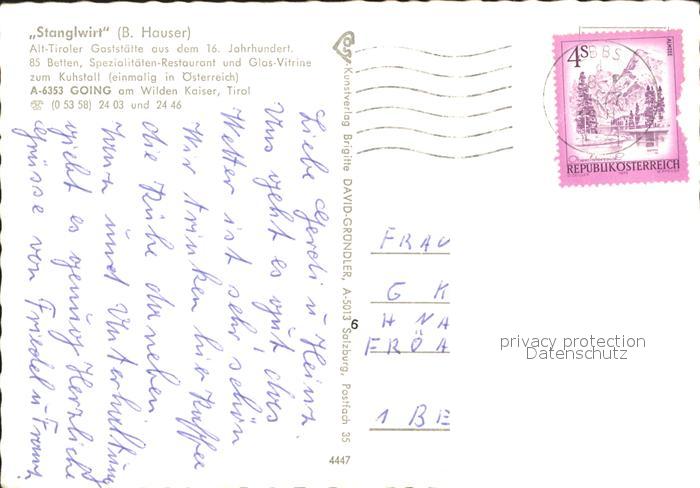 „Stanglwirt“ (B. Hauser)
Alt-Tiroler Gaststätte aus dem 16. Jahrhundert.
85 Betten, Spezialitäten-Restaurant und Glas-Vitrine
zum Kuhstall (einmalig in Österreich)
A-6353 GOING am Wilden Kaiser, Tirol
☎ (0 53 58) 24 03 und 24 46
Liebe Gerdi u Heinz.
Uns geht es gut das
Wetter ist sehr schön
Wir trinken hier Kaffee
die Kühe daneben
Tanz und Unterhaltung
gicht es genug Herzliche
Grüsse von Friedel u Franz
Kunstverlag Brigitte DAVID-GRÜNDLER, A-5013 Salzburg, Postfach 35
6
4447
4S
ALMSEE
REPUBLIK ÖSTERREICH
FRAU
G K
H NA
FRÖA
1 BE
privacy protection
Datenschutz